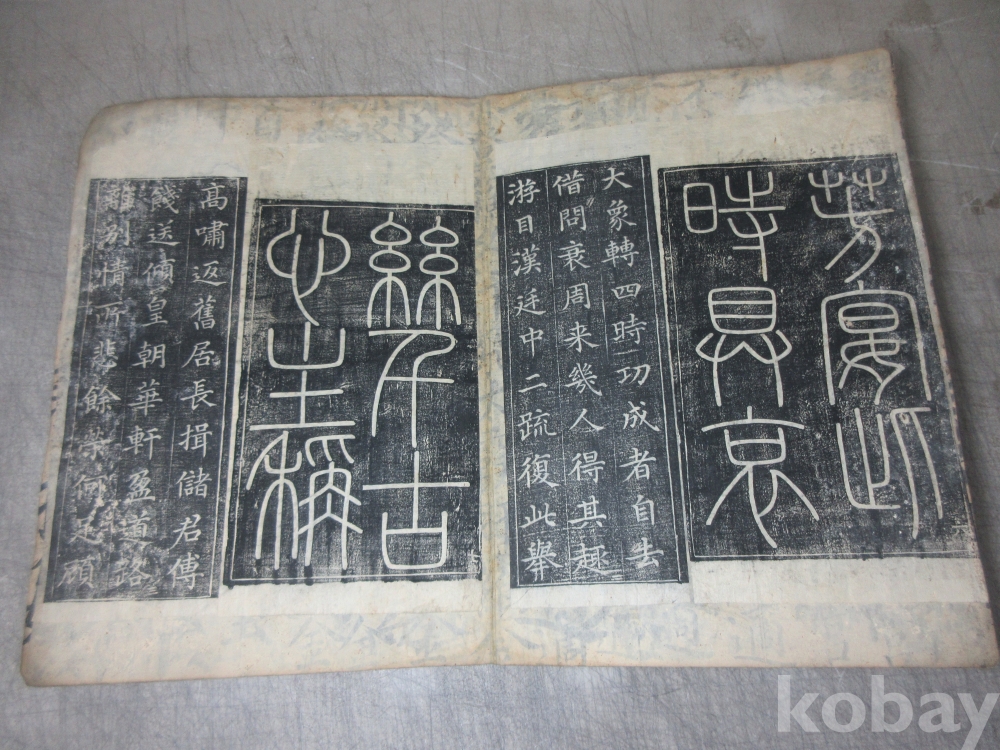 芳宴此
時具哀
大象轉四時功成者自去
借問衰周来幾人得其趣
游目漢廷中二疏復此舉
絲千古
心主稱
高嘯返舊居長揖儲君傅
餞送傾皇朝華軒盈道路
離別情所悲餘榮何足顧
kobay